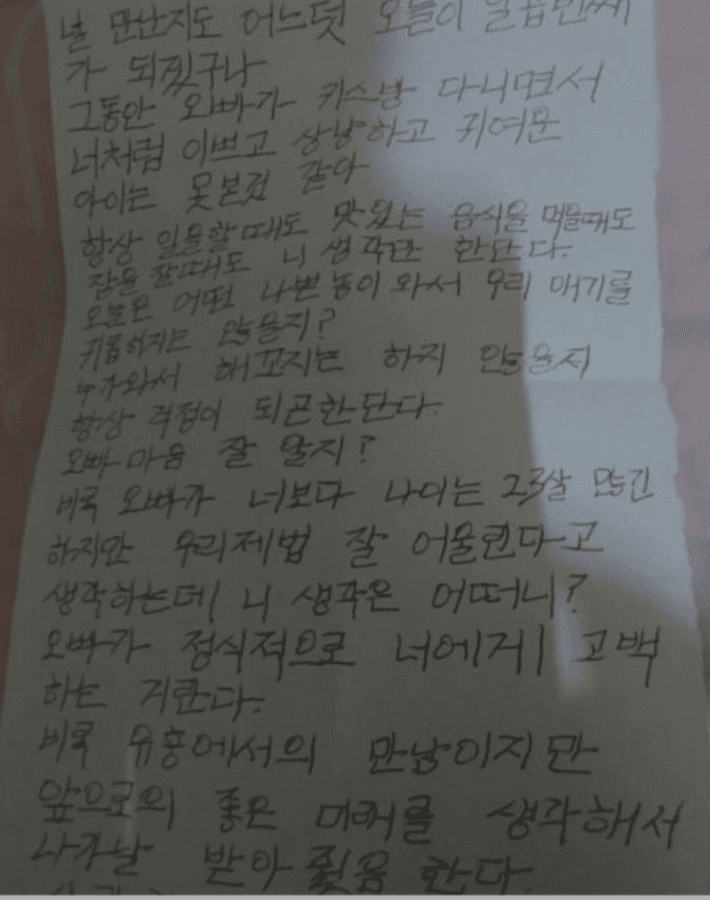 널 만난지도 어느덧 오늘이 일곱번째
가 되겠구나
그동안 오빠가 키스방 다니면서
너처럼 이쁘고 상냥하고 귀여운
아이는 못본것 같아
항상 일을할때도 맛있는 음식을 먹을때도
잠을 잘때도 니 생각만 한단다.
오늘은 어떤 나쁜놈이 와서 우리 애기를
괴롭히지는 않을지?
누가와서 해꼬지는 하지 않을지
항상 걱정이 되곤한단다.
오빠 마음 잘 알지?
비록 오빠가 너보다 나이는 23살 많긴
하지만 우리제법 잘 어울린다고
생각하는데 니 생각은 어떠니?
오빠가 정식적으로 너에게 고백
하는 거란다.
비록 유흥에서의 만남이지만
앞으로의 좋은 미래를 생각해서
나가날 받아 한다.